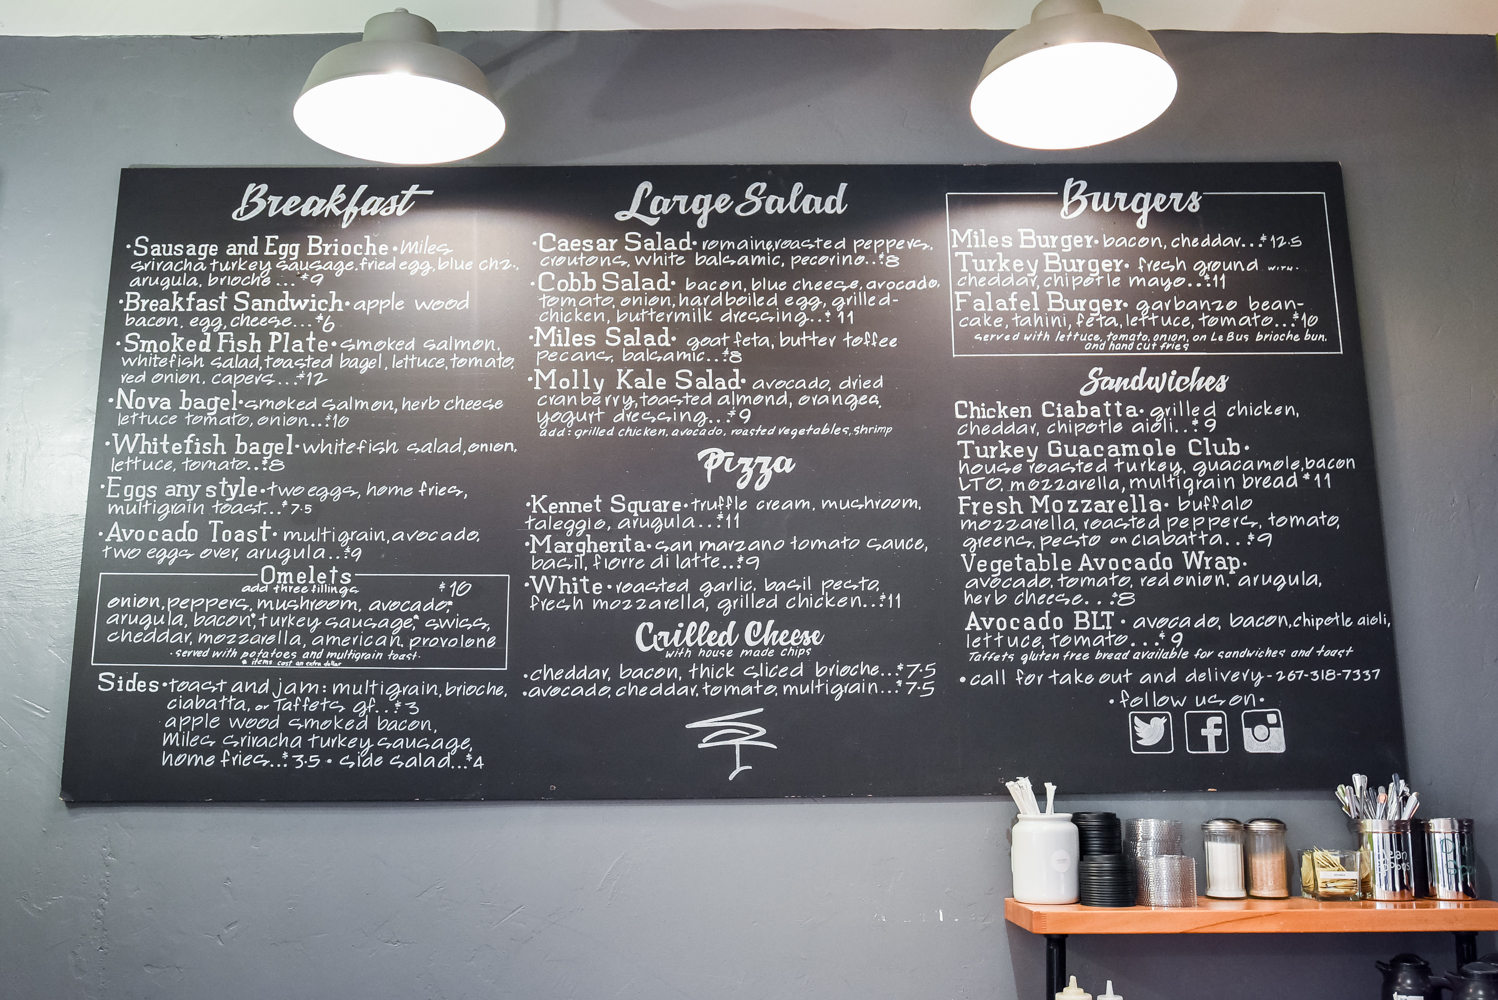 Breakfast
·Sausage and Egg Brioche·Miles
sriracha turkey sausage, fried egg, blue chz.,
arugula, brioche ...$9
·Breakfast Sandwich·apple wood
bacon, egg, cheese...$6
·Smoked Fish Plate·smoked salmon,
whitefish salad, toasted bagel, lettuce, tomato,
red onion, capers...$12
·Nova bagel·smoked salmon, herb cheese
lettuce tomato, onion...$10
·Whitefish bagel·whitefish salad, onion,
lettuce, tomato...$8
·Eggs any style·two eggs, home fries,
multigrain toast...$7.5
·Avocado Toast·multigrain, avocado,
two eggs over, arugula...$9
Omelets
add three fillings $10
onion, peppers, mushroom, avocado*,
arugula, bacon*, turkey sausage*, swiss,
cheddar, mozzarella, american, provolone
·served with potatoes and multigrain toast·
* items cost an extra dollar
Sides·toast and jam: multigrain, brioche,
ciabatta, or Taffets gf...$3
apple wood smoked bacon,
Miles sriracha turkey sausage,
home fries...$3.5 · side salad...$4
Large Salad
·Caesar Salad·romaine, roasted peppers,
croutons, white balsamic, pecorino...$8
·Cobb Salad· bacon, blue cheese, avocado,
tomato, onion, hardboiled egg, grilled-
chicken, buttermilk dressing...$11
·Miles Salad· goat feta, butter toffee
pecans, balsamic...$8
·Molly Kale Salad· avocado, dried
cranberry, toasted almond, oranges,
yogurt dressing...$9
add: grilled chicken, avocado, roasted vegetables, shrimp
Pizza
·Kennet Square·truffle cream, mushroom,
taleggio, arugula...$11
·Margherita·san marzano tomato sauce,
basil, fiorre di latte...$9
·White·roasted garlic, basil pesto,
fresh mozzarella, grilled chicken...$11
Grilled Cheese
with house made chips
·cheddar, bacon, thick sliced brioche...$7.5
·avocado, cheddar, tomato, multigrain...$7.5
Burgers
Miles Burger· bacon, cheddar...$12.5
Turkey Burger· fresh ground with·
cheddar, chipotle mayo...$11
Falafel Burger· garbanzo bean-
cake, tahini, feta, lettuce, tomato...$10
served with lettuce, tomato, onion, on LeBus brioche bun,
and hand cut fries
Sandwiches
Chicken Ciabatta· grilled chicken,
cheddar, chipotle aioli...$9
Turkey Guacamole Club·
house roasted turkey, guacamole, bacon
LTO, mozzarella, multigrain bread $11
Fresh Mozzarella· buffalo
mozzarella, roasted peppers, tomato,
greens, pesto on ciabatta...$9
Vegetable Avocado Wrap·
avocado, tomato, red onion, arugula,
herb cheese...$8
Avocado BLT · avocado, bacon, chipotle aioli,
lettuce, tomato...$9
Taffets gluten free bread available for sandwiches and toast
·call for take out and delivery-267-318-7337
·follow us on·